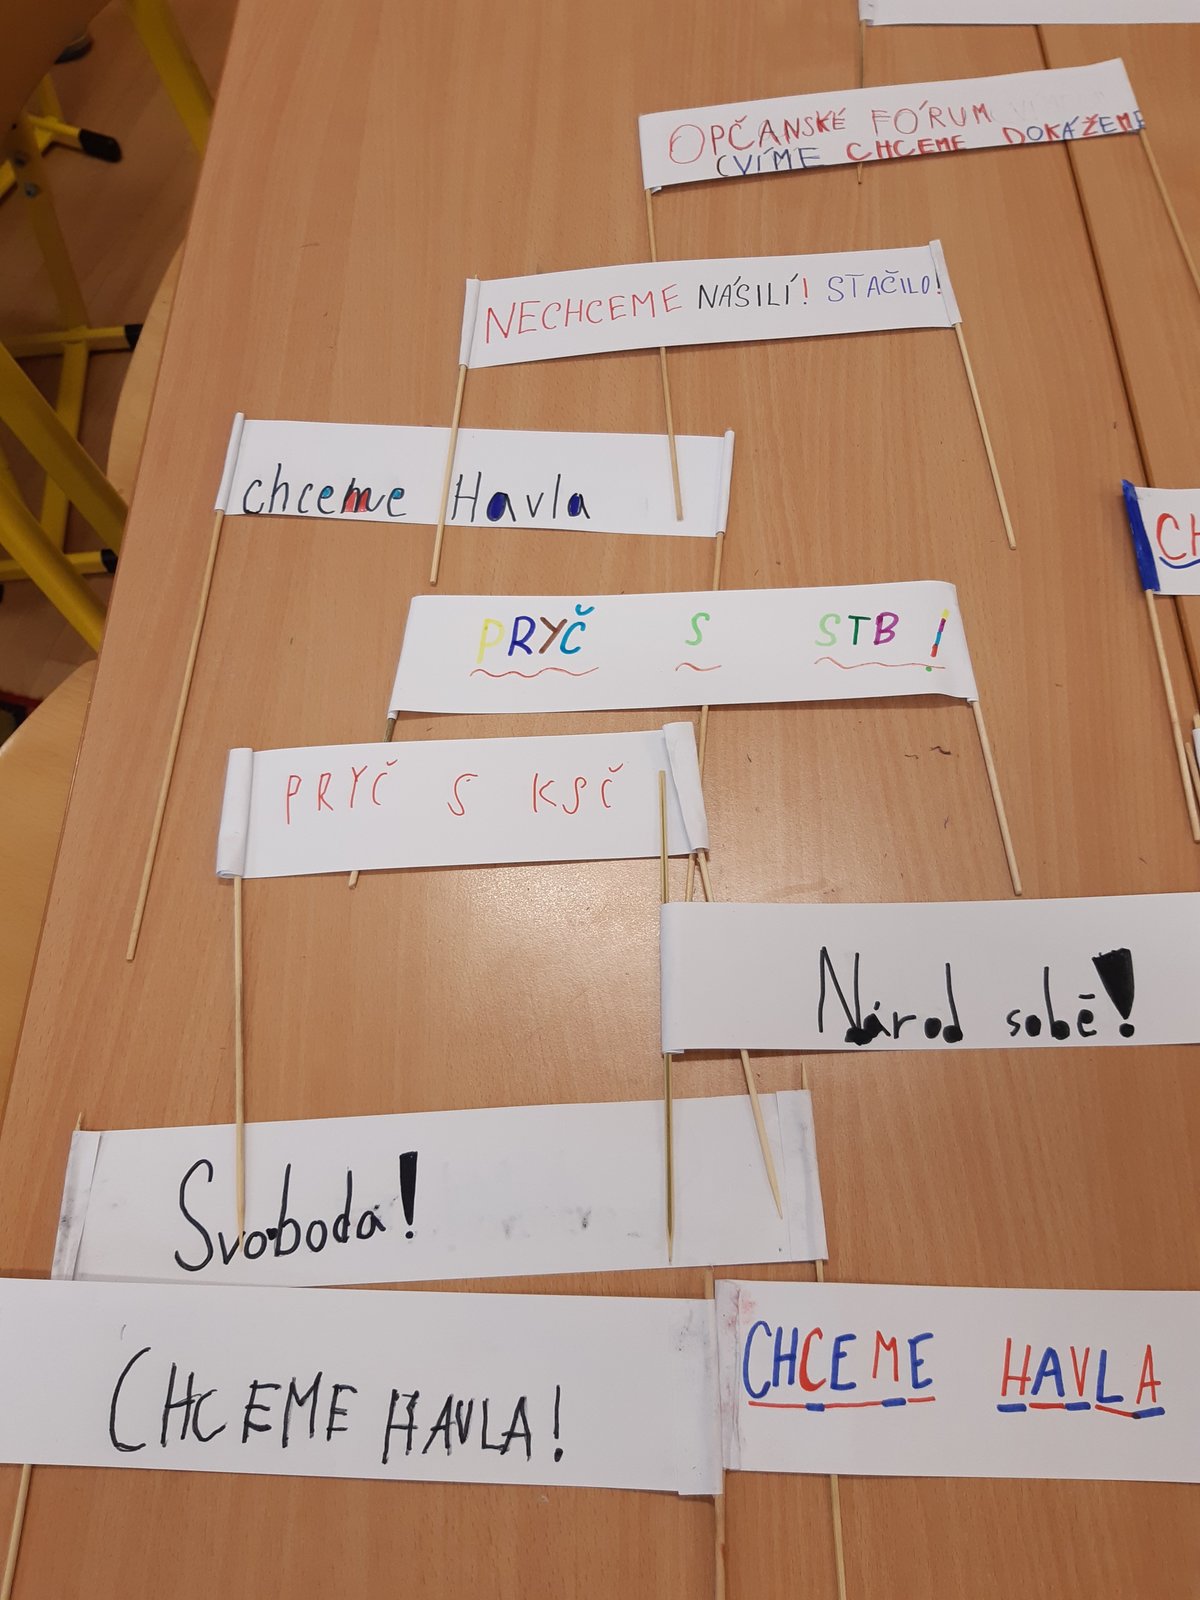 OPČANSKÉ FÓRUM
CVÍME CHCEME DOKÁŽEME
NECHCEME NÁSILÍ! STAČILO!
chceme Havla
CH
PRYČ S STB!
PRYČ S KSČ
Národ sobě!
Svoboda!
CHCEME HAVLA!
CHCEME HAVLA